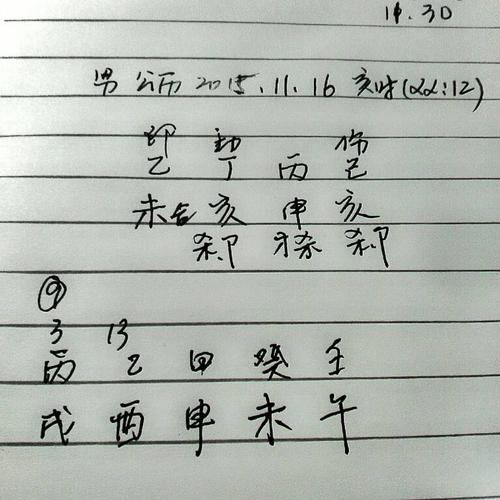 14.30
男 公历 2015.11.16 亥时(22:12)
印 劫 伤
乙 丁 丙 己
未 亥 申 亥
杀印 才杀 杀印
9
3 13
丙 乙 甲 癸 壬
戌 酉 申 未 午